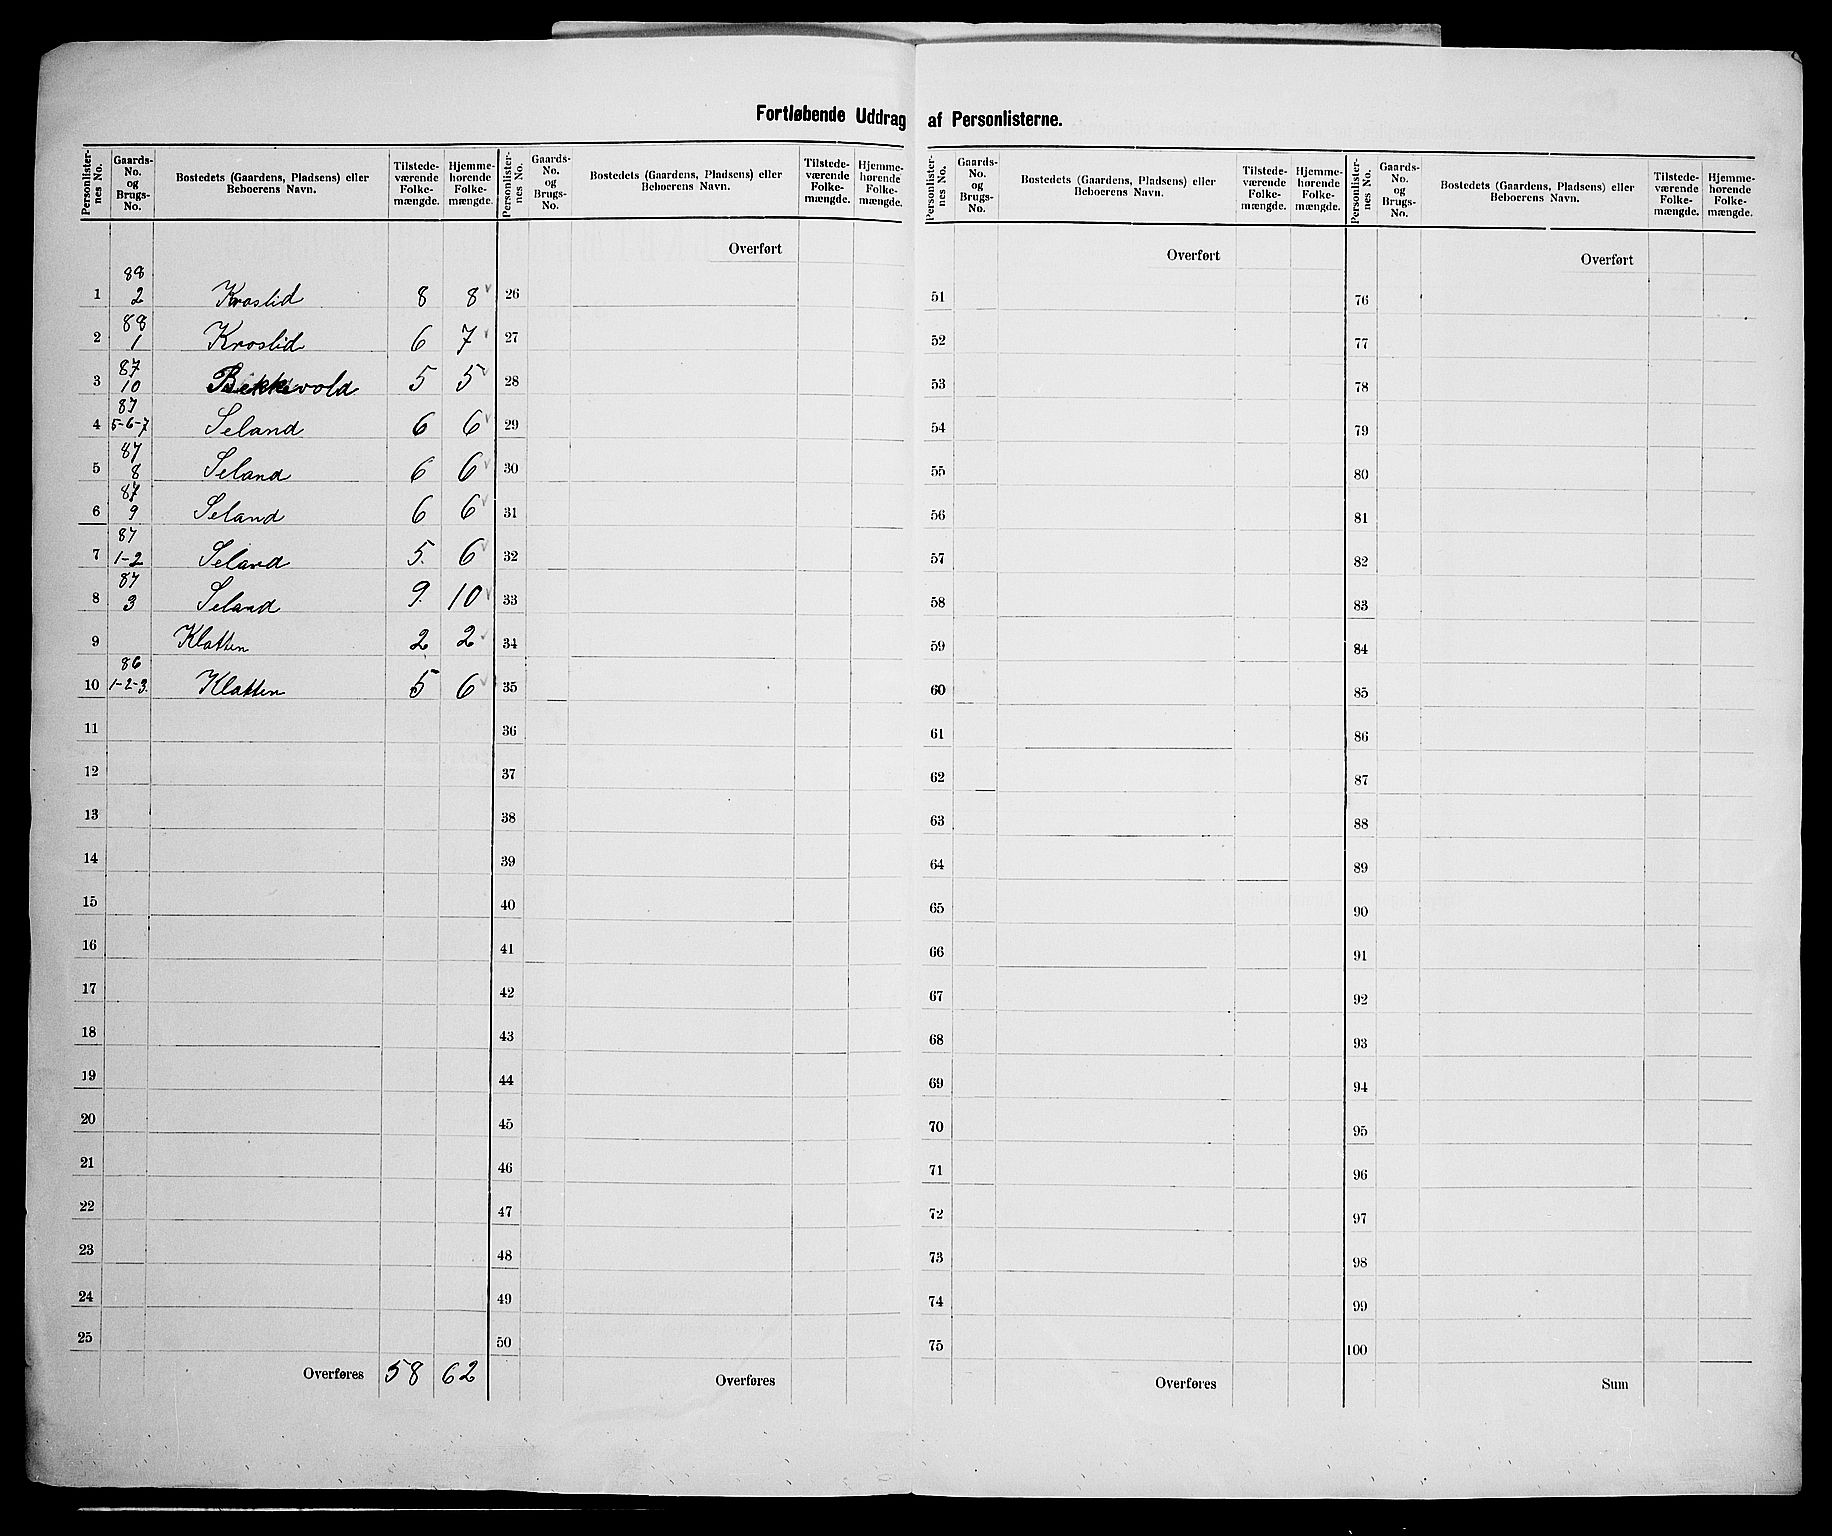 Fortløbende Uddrag af Personlisterne.
Personlister-nes No. | Gaards-No. og Brugs-No. | Bostedets (Gaardens, Pladsens) eller Beboerens Navn. | Tilstede-værende Folke-mængde. | Hjemme-hørende Folke-mængde.
1 | 88 2 | Kroslid | 8 | 8
2 | 88 1 | Kroslid | 6 | 7
3 | 87 10 | Bekkevold | 5 | 5
4 | 87 5-6-7 | Seland | 6 | 6
5 | 87 8 | Seland | 6 | 6
6 | 87 9 | Seland | 6 | 6
7 | 87 1-2 | Seland | 5. | 6
8 | 87 3 | Seland | 9. | 10
9 | Klatten | 2 | 2
10 | 86 1-2-3. | Klatten | 5 | 6
11
12
13
14
15
16
17
18
19
20
21
22
23
24
25
Overføres 58 62
Personlister-nes No. | Gaards-No. og Brugs-No. | Bostedets (Gaardens, Pladsens) eller Beboerens Navn. | Tilstede-værende Folke-mængde. | Hjemme-hørende Folke-mængde.
Overført
26
27
28
29
30
31
32
33
34
35
36
37
38
39
40
41
42
43
44
45
46
47
48
49
50
Overføres
Personlister-nes No. | Gaards-No. og Brugs-No. | Bostedets (Gaardens, Pladsens) eller Beboerens Navn. | Tilstede-værende Folke-mængde. | Hjemme-hørende Folke-mængde.
Overført
51
52
53
54
55
56
57
58
59
60
61
62
63
64
65
66
67
68
69
70
71
72
73
74
75
Overføres
Personlister-nes No. | Gaards-No. og Brugs-No. | Bostedets (Gaardens, Pladsens) eller Beboerens Navn. | Tilstede-værende Folke-mængde. | Hjemme-hørende Folke-mængde.
Overført
76
77
78
79
80
81
82
83
84
85
86
87
88
89
90
91
92
93
94
95
96
97
98
99
100
Sum